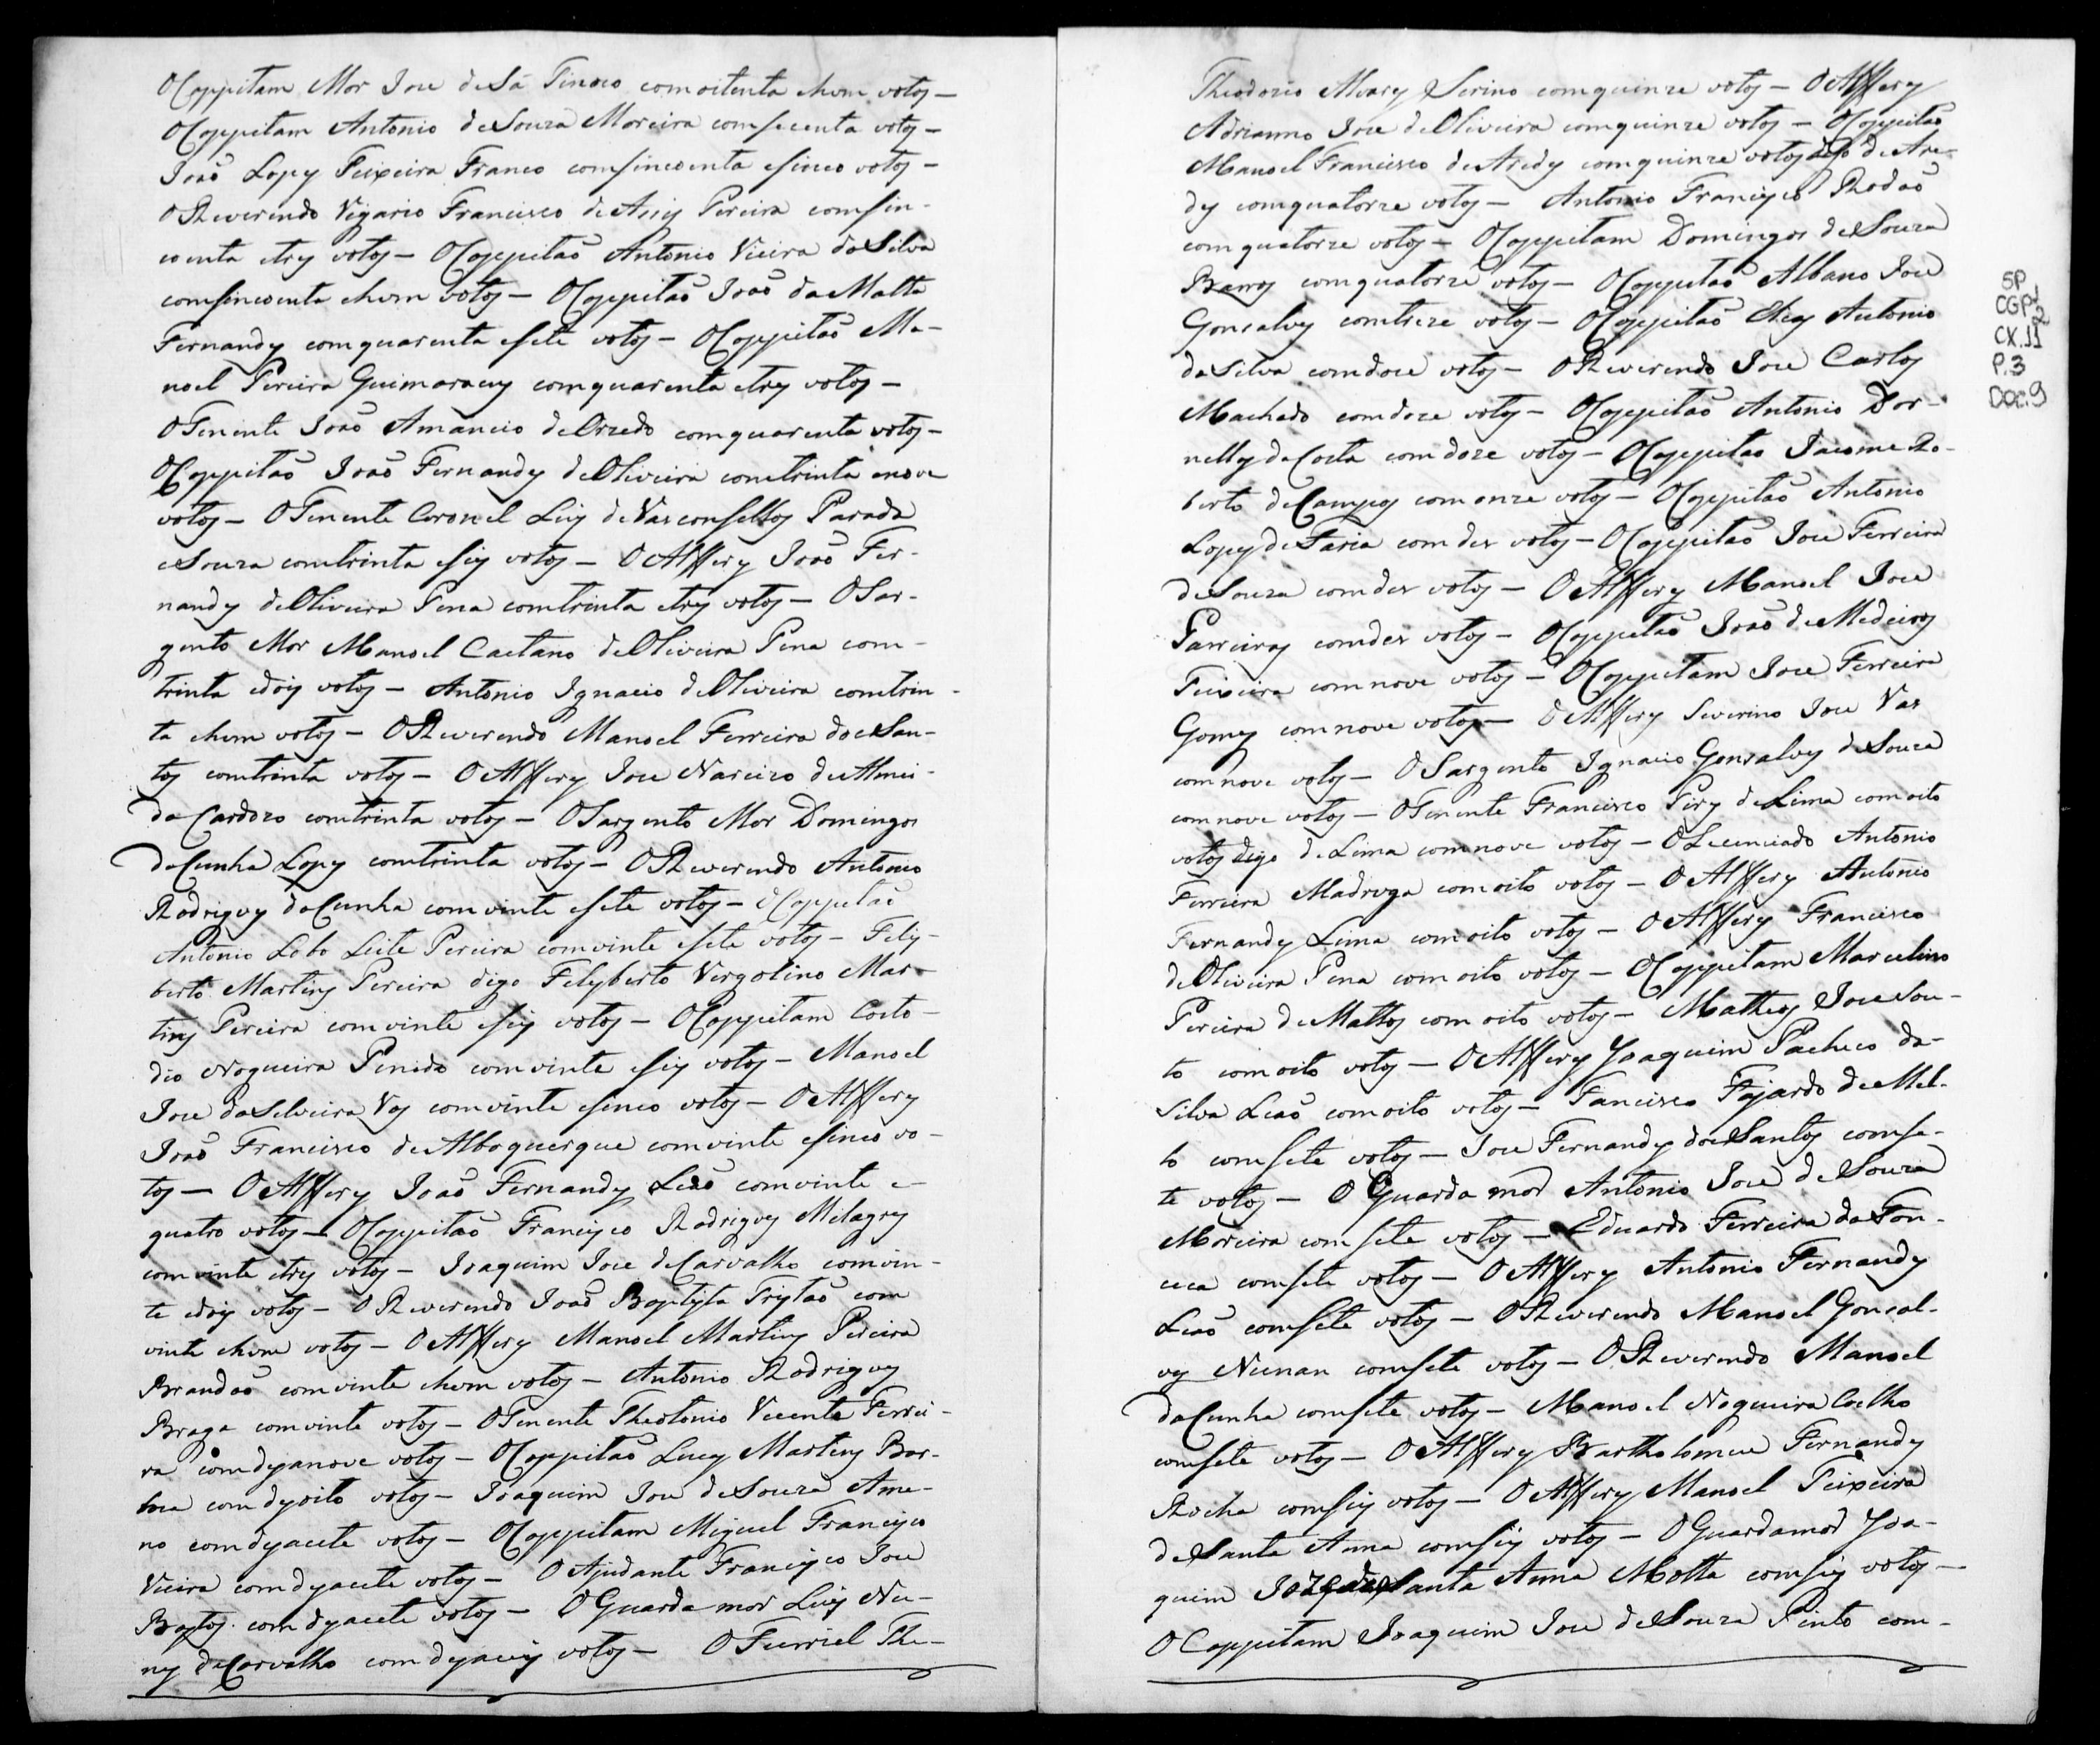 O Cappitam Mor Joze de Sá Tinoco com oitenta ehum votos –
O Cappitam Antonio de Souza Moreira com secenta votos –
Joaõ Lopes Teixeira Franco com sincoenta esinco votos –
O Reverendo Vigario Francisco de Assis Pereira com sin-
coenta etres votos – O Cappitaõ Antonio Vieira da Silva
com sincoenta ehum votos – O Cappitaõ Joaõ da Matta
Fernandes com quarenta esete votos – O Cappitaõ Ma-
noel Pereira Guimaraens com quarenta etres votos –
O Tenente Joaõ Amancio de Orzedo com quarenta votos –
O Cappitaõ Joaõ Fernandes de Oliveira com trinta enove
votos – O Tenente Coronel Luis de Vasconsellos Parada
e Souza com trinta eseis votos – O Alfferes Joaõ Fer-
nandes de Oliveira Pena com trinta etres votos – O Sar-
gento Mor Manoel Caetano de Oliveira Pena com-
trinta edois votos – Antonio Ignacio de Oliveira com trin-
ta ehum votos – O Reverendo Manoel Ferreira dos San-
tos com trinta votos – O Alfferes Joze Narcizo de Almei-
da Cardozo com trinta votos – O Sargento Mor Domingos
da Cunha Lopes com trinta votos – O Reverendo Antonio
Rodrigues da Cunha com vinte esete votos – O Cappitaõ
Antonio Lobo Leite Pereira com vinte esete votos – Felis-
berto Martins Pereira digo Felisberto Vergolino Mar-
tins Pereira com vinte eseis votos – O Cappitam Costo-
dio Nogueira Penido com vinte eseis votos – Manoel
Joze da Silveira Vas com vinte esinco votos – O Alfferes
Joaõ Francisco de Alboquerque com vinte esinco vo-
tos – O Alfferes Joaõ Fernandes Leaõ com vinte e-
quatro votos – O Cappitaõ Francisco Rodrigues Milagres
com vinte etres votos – Joaquim Joze de Carvalho com vin-
te edois votos – O Reverendo Joaõ Baptista Fristaõ com
vinte ehum votos – O Alfferes Manoel Martins Pereira
Brandaõ com vinte ehum votos – Antonio Rodrigues
Braga com vinte votos – O Tenente Theotonio Vicente Ferrei-
ra com dezanove votos – O Cappitaõ Lucas Martins Bar-
boza com dezoito votos – Joaquim Joze de Souza Ame-
no com dezacete votos – O Cappitam Miguel Francisco
Vieira com dezacete votos – O Ajudante Francisco Joze
Bastos com dezacete votos – O Guarda mor Luis Nu-
nes de Carvalho com dezaceis votos – O Furriel The-
Theodozio Alvares Serino com quinze votos – O Alfferes
Adrianno Joze de Oliveira com quinze votos – O Cappitaõ
Manoel Francisco de Aredes com quinze votos digo de Are-
des com quatorze votos – Antonio Francisco Rodaõ
com quatorze votos – O Cappitam Domingos de Souza
Barros com quatorze votos – O Cappitaõ Albano Joze
Gonsalves com treze votos – O Cappitaõ Elias Antonio
da Silva com doze votos – O Reverendo Joze Carlos
Machado com doze votos – O Cappitaõ Antonio Dor-
nellas da Costa com doze votos – O Cappitaõ Jacome Ro-
berto de Campos com onze votos – O Cappitaõ Antonio
Lopes de Faria com des votos – O Cappitaõ Joze Ferreira
de Souza com des votos – O Alfferes Manoel Joze
Parreiras com des votos – O Cappitaõ Joaõ de Medeiros
Teixeira com nove votos – O Cappitam Joze Ferreira
Gomes com nove votos – O Alfferes Severino Joze Vas
com nove votos – O Sargento Ignacio Gonsalves de Souza
com nove votos – O Tenente Francisco Pires de Lima com oito
votos digo de Lima com nove votos – O Lecenciado Antonio
Ferreira Madruga com oito votos – O Alfferes Antonio
Fernandes Lima com oito votos – O Alfferes Francisco
de Oliveira Pena com oito votos – O Cappitam Marcelino
Pereira de Mattos com oito votos – Matheos Joze Sou-
to com oito votos – O Alfferes Joaquim Pacheco da-
Silva Leaõ com oito votos – Fancisco Fajardo de Mel-
lo com sete votos – Joze Fernandes dos Santos com se-
te votos – O Guarda mor Antonio Joze de Souza
Moreira com sete votos – Eduardo Ferreira da Fon-
ceca com sete votos – O Alfferes Antonio Fernandes
Leaõ com sete votos – O Reverendo Manoel Gonsal-
ves Neunan com sete votos – O Reverendo Manoel
da Cunha com sete votos – Manoel Nogueira Coelho
com sete votos – O Alfferes Bartholomeu Fernandes
Rocha com seis votos – O Alfferes Manoel Teixeira
de Santa Anna com seis votos – O Guardamor Joa-
quim Joze de Santa Anna Motta com seis votos –
O Cappitam Joaquim Joze de Souza Pinto com-
SP
CGP 1/2
CX.11
P.3
DOC.9